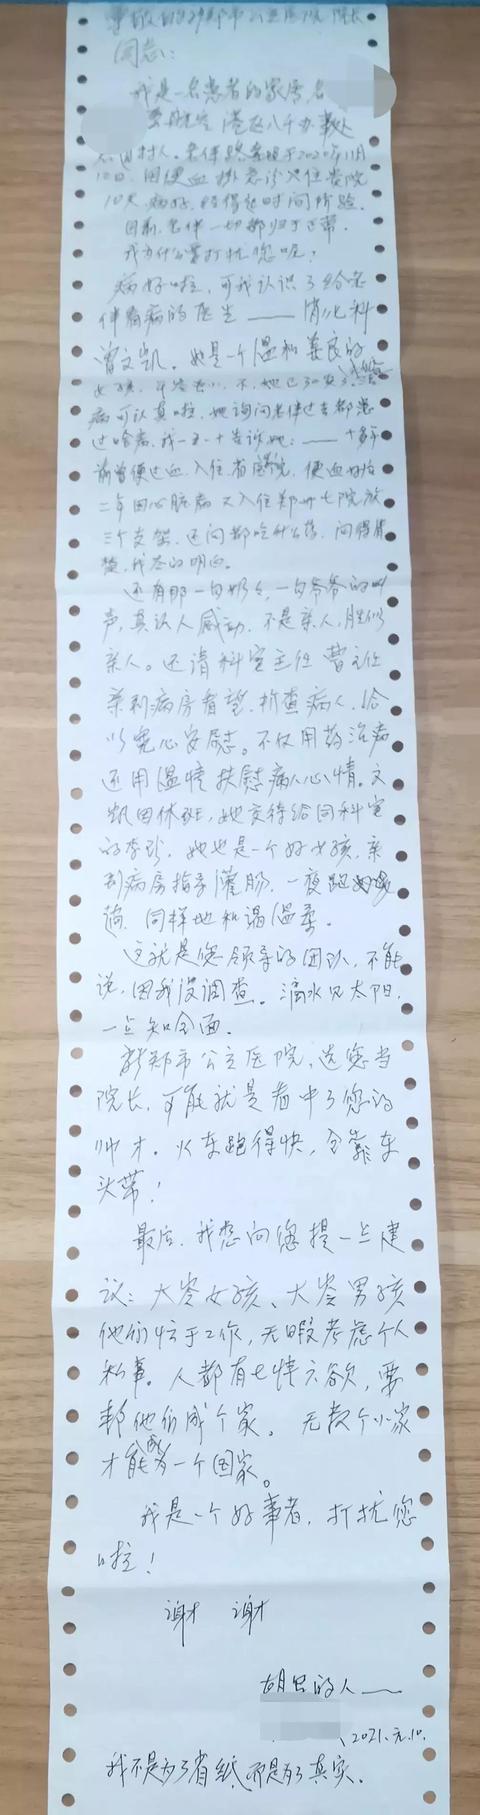 尊敬的新郑市公立医院院长
同志：
我是一名患者的家属，名
港区八千办事处
村人。老伴 于2020年11月
10日，因便血挂急诊入住贵院
10天，病好，经得起时间考验。
目前，老伴一切都归于正常。
我为什么要打扰您呢？
病好啦，可我认识了给老
伴看病的医生——消化科
曾文凯。她是一个温和善良的
女孩，年岁不小，她已30岁了，
病可认真啦，她询问老伴过去都患
过啥病，我一五一十告诉她：——十多年
前曾便过血，入住省医院，便血好后
二年因心脏病又入住郑州七院放
三个支架，还问都吃什么药，问得清
楚，我答的明白。
还有那一句奶奶，一句爷爷的叫
声，真让人感动，不是亲人，胜似
亲人。还请科室主任曹主任
亲到病房看望、检查病人，给
以宽心安慰。不仅用药治病
还用温情抚慰病人心情。文
凯因休班，她交待给同科室
的李珍，她也是一个好女孩，亲
到病房指导灌肠，一夜跑好几
趟，同样地和蔼温柔。
这就是您领导的团队，不能
说，因我没调查。滴水见太阳，
一点知全面。
新郑市公立医院，选您当
院长，可能就是看中了您的
帅才。火车跑得快，全靠车
头带！
最后，我想向您提一点建
议：大龄女孩、大龄男孩
他们忙于工作，无暇考虑个人
私事。人都有七情六欲，要
帮他们成个家。无数个小家
才能成为一个国家。
我是一个好事者，打扰您
啦！
谢 谢
的人——
2021.元.10.
我不是为了省纸，而是为了真实。